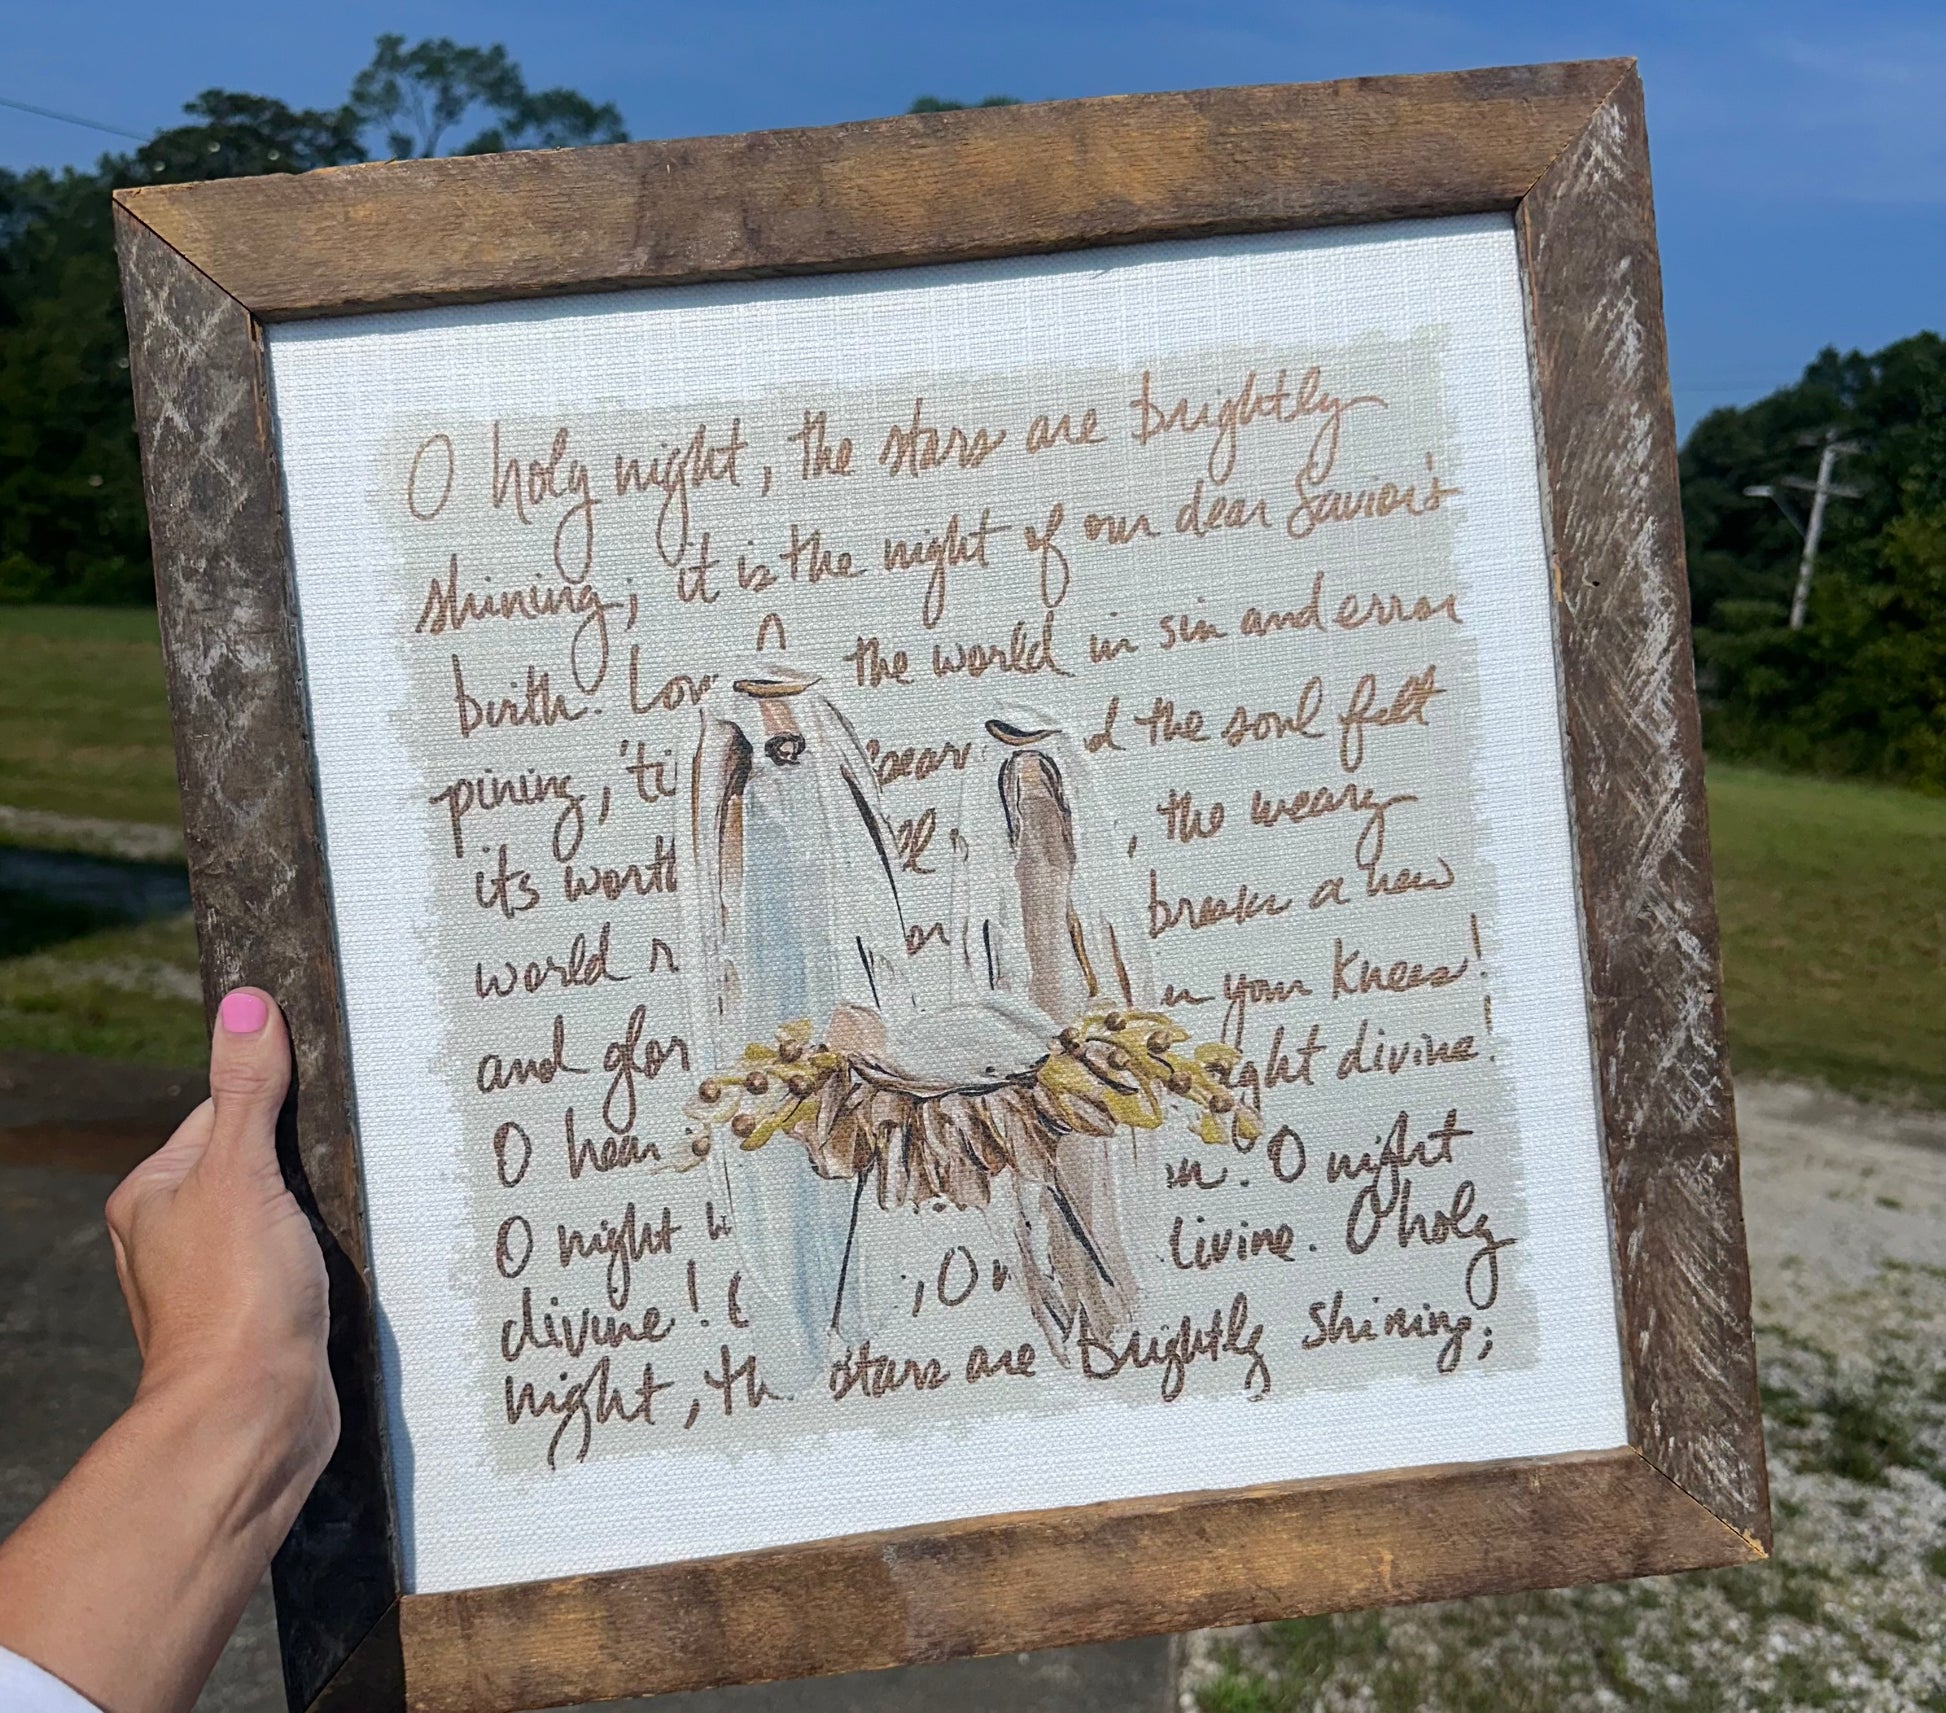 O holy night, the stars are brightly
shining; it is the night of our dear Savior's
birth. Lon the world in sin and error
pining, 'ti pear d the soul felt
its worth , the weary
world r or breaks a new
and glor n your knees!
O hear ght divine!
O night w n. O night
divine! O , O n divine. O holy
night, th stars are brightly shining;